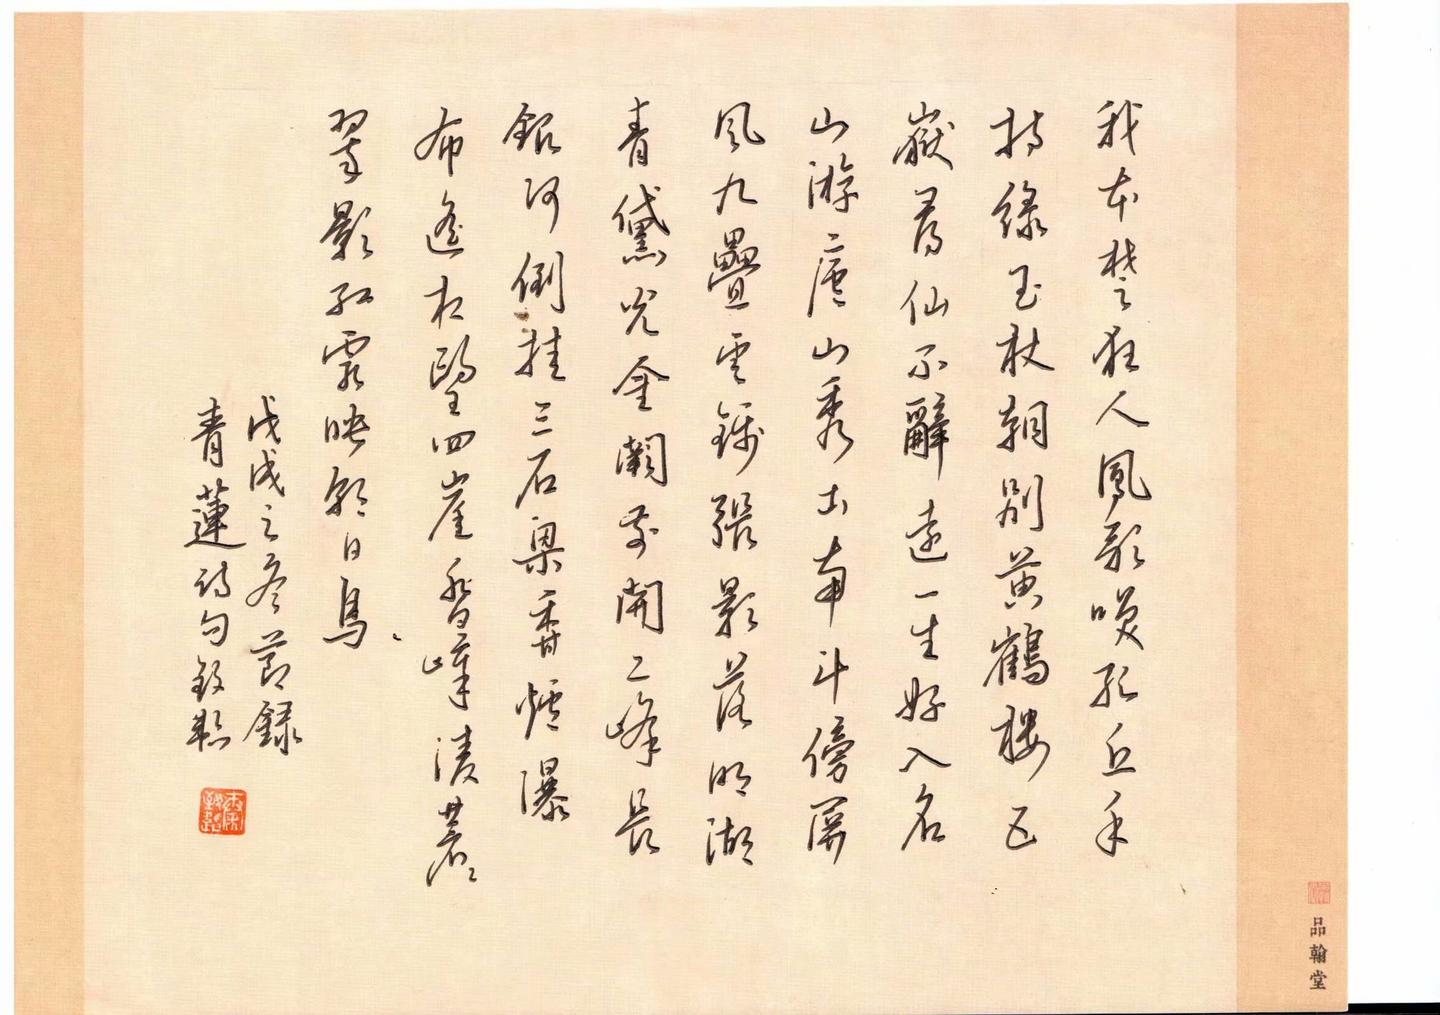 我本楚狂人鳳歌唉孔丘手
持綠玉杖朝別黃鶴樓五
嶽尋仙不辭遠一生好入名
山游廬山秀出南斗傍屏
風九疊雲錦張影落明湖
青黛光金闕前開二峰長
銀河倒挂三石梁香爐瀑
布遙相望四崖沓嶂淩蒼蒼
翠影紅霞映朝日鳥
戊戌之冬節錄
青蓮詩句
品翰堂